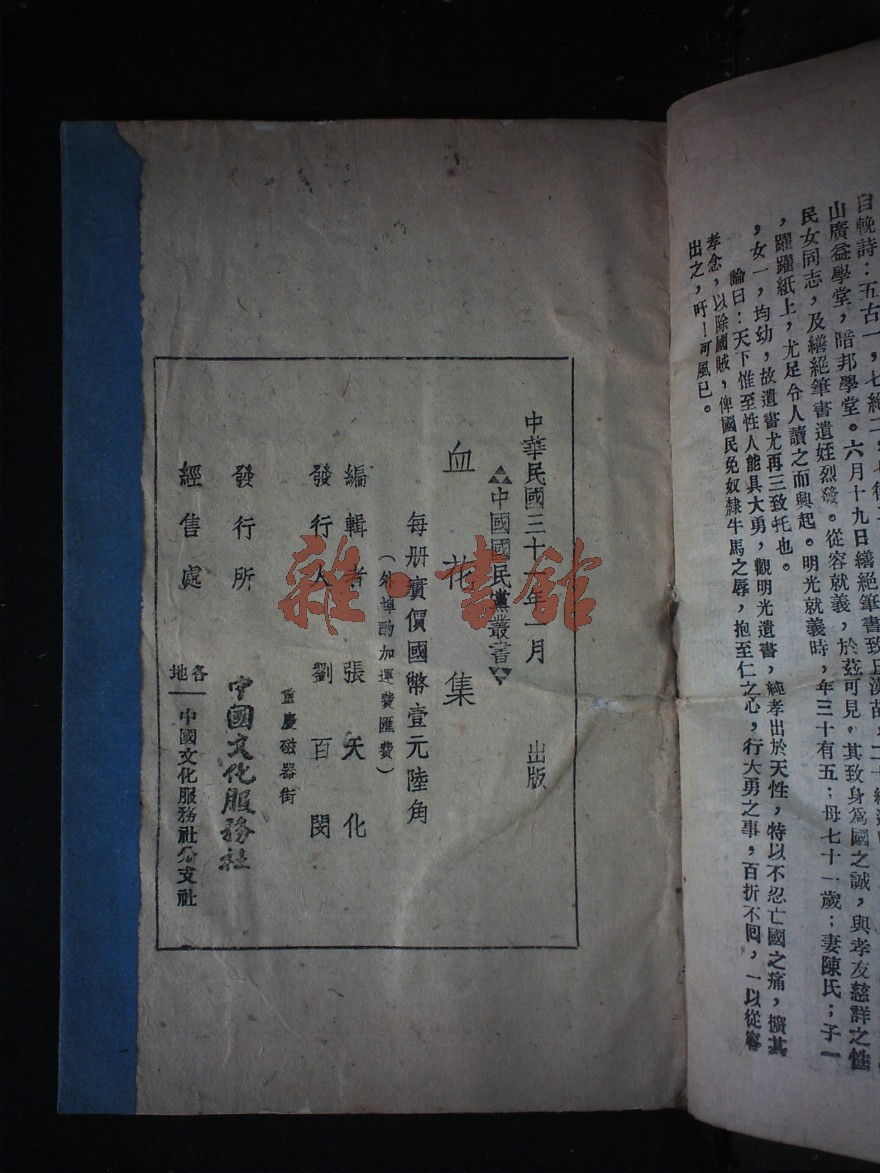 山廣益學堂,陪邦學堂。六月十九日繕絕筆書致丘漢苗,二十繕
民女同志,及繕絕筆書遺姪烈發。從容就義,於茲可見,其致身爲國之誠,與孝友慈詳之性
,躍躍紙上,尤足令人讀之而興起。明光就義時,年三十有五;母七十一歲;妻陳氏;子一
,女一,均幼,故遺書尤再三致托也。
論曰:天下惟至性人能具大勇,觀明光遺書,純孝出於天性,特以不忍亡國之痛,擴其
孝念,以除國賊,俾國民免奴隸牛馬之辱,抱至仁之心,行大勇之事,百折不囘,一以從容
出之,吁!可風已。
中華民國三十一年一月 出版
中國國民黨叢書
血花集
每册實價國幣壹元陸角
(外埠酌加運費匯費)
編輯者 張天化
發行人 劉百閔
重慶磁器街
發行所 中國文化服務社
經售處 各地中國文化服務社分支社
雜·書館